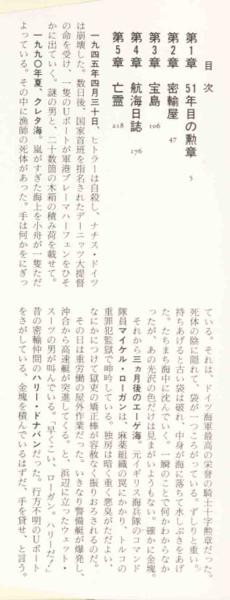 目次
第1章 51年目の勲章 5
第2章 密輸屋 47
第3章 宝島 106
第4章 航海日誌 176
第5章 亡霊 218
一九四五年四月三十日、ヒトラーは自殺し、ナチス・ドイツ
は崩壊した。数日後、国家首班を指名されたデーニッツ大提督
の命を受け、一隻のUボートが軍港ブレーマーハーフェンをひそ
かに出ていく。謎の男と、二十数箇の木箱の積み荷を載せて。
一九九〇年夏、クレタ海。嵐がすぎた海上を小舟が一隻ただ
よっている。その中に漁師の死体があった。手は何かをにぎっ
ている。それは、ドイツ海軍最高の栄誉の騎士十字勲章だった。
死体の陰に隠れて、袋が一つころがっている。ずしりと重い。
持ちあげると古い袋は破れ、中身が海に落ちて水しぶきをあげ
た。たちまち海中に沈んでいく。一瞬のことで何かわからなか
ったが、あの光沢の色だけは見まがいようもない。確かに金塊。
それから三ヵ月後のエーゲ海。元イギリス海兵隊のコマンド
隊員マイケル・ローガンは、麻薬組織の罠にかかり、トルコの
重罪犯監獄で呻吟している。独房は暗く重く悪臭がただよい、
なにかにつけて獄吏の矯正棒が容赦なく振りおろされるのだ。
その日は重労働の屋外作業だった。いきなり警備艇が爆発し、
沖合から高速艇が突進してくる。と、浜辺に立ったウェット・
スーツの男が叫んでいる。「早くこい、ローガン。ハリーだ！」
昔の密輸仲間のハリー・ドナバンだった。行方不明のUボート
をさがしている、金塊を積んでいるはずだ、手を貸せ、と言う。